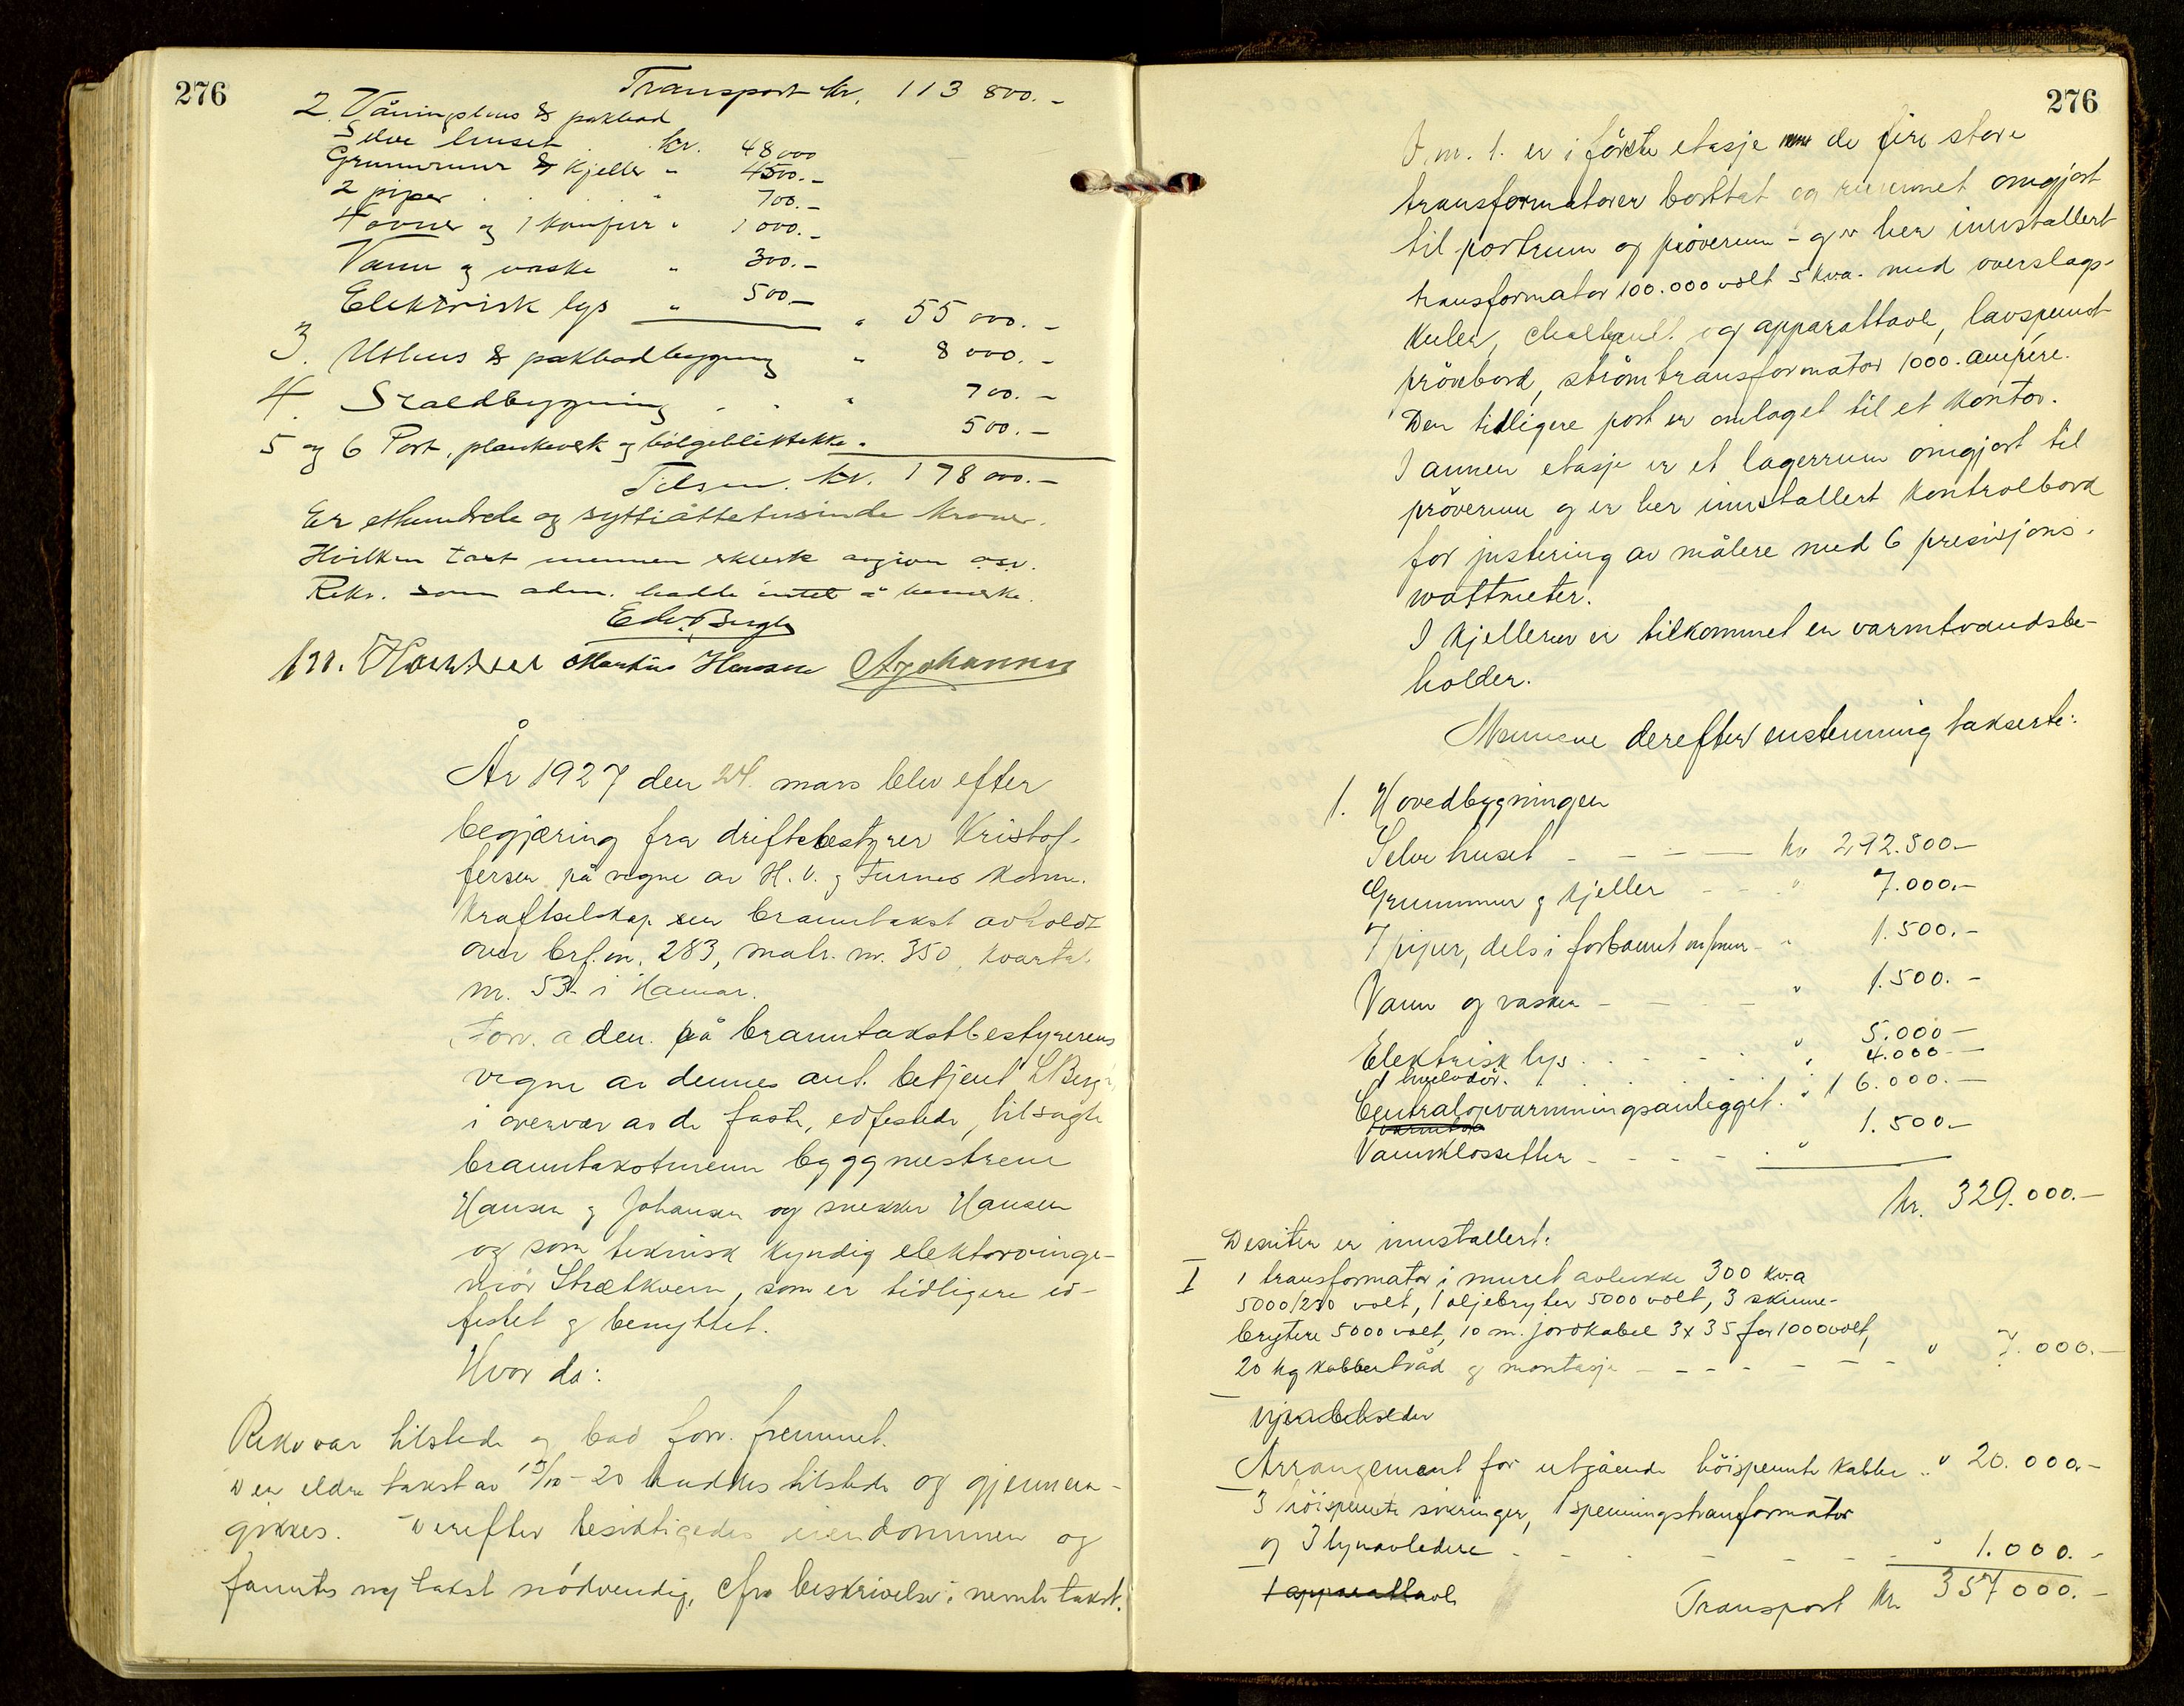 276
Transport kr. 113 800.-
2. Våningshus & pakbod
Selve huset . kr. 48 000
Grunnmur & kjeller " 4500.-
2 piper . . " 700.-
4 ovner og 1 komfur " 1 000.-
Vann og vaske " 300.-
Elektrisk lys " 500.- " 55 000.-
3. Uthus & pakbodbygning " 8 000.-
4. Skaldbygning . . " 700.-
5 og 6 Port, plankeverk og bølgeblikttekke " 500.-
Tilsm. kr. 178 000.-
Er ethundrede og syttiåttetusinde kroner.
Hvilken takst mennene erklærte avgiven osv.
Rekv. som adm. hadde intet å bemerke.
Edv. Bergh
M. Hansen Martius Hansen A Johannsen
År 1927 den 24. mars blev efter
begjæring fra driftsbestyrer Kristof-
fersen på vegne av H. V. og Furnes komm.
Kraftselskap en branntakst avholdt
over brf. nr. 283, matr. nr. 350, kvartal
nr. 53 i Hamar.
Forr. a den. på branntakstbestyrerens
vegne av dennes aut. betjent L Bergh,
i overvær av de faste, edfestede, tilsagte
branntakstmenn byggmestrene
Hansen og Johansen og snekker Hansen
og som teknisk kyndig elektroinge-
niör Strætkvern, som er tidligere ed-
festet og benyttet.
Hvor da:
Rekv var tilstede og bad forr. fremmet.
Den eldre takst av 15/10-20 hadde tilstede og gjennem-
gikkes. Derefter besiktigedes eiendommen og
fanntes ny takst nödvendig, cfr beskrivelse i nevnte takst.
276
V. nr. 1. er i förste etasje de fire store
transformatorer borttat og rummet omgjort
til portrum og pröverum - og er her innstallert
transformator 100.000 volt 5 kva. med overslags-
kuler, og apparattavle, lavspennt
prövebord, strömtransformator 1000. ampére.
Den tidligere port er omlaget til et kontor.
I annen etasje er et lagerrum omgjort til
pröverum og er her innstallert kontrolbord
for justering av målere med 6 presisjons-
wattmeter.
I kjelleren er tilkommet en varmtvandsbe-
holder.
Mennene derefter enstemmig takserte:
1. Hovedbygningen
Selve huset - - - kr 292.500.-
Grunnmur og kjeller - - - " 7.000.-
7 piper, dels i forbannt m/mur - " 1.500.-
Vann og vasker - - - " 1.500.-
Elektrisk lys . - - - " 5.000 -
1 hvelvdör. . . . " 4.000 -
Centralopvarmningsanlegget. " 16.000.-
Vannklossetter - - - - " 1.500.-
kr. 329.000.-
Desuten er innstallert:
I 1 transformator i muret avlukke 300 kva
5000/230 volt, 1 oljebryter 5000 volt, 3 skinne-
brytere 5000 volt, 10 m. jordkabel 3x35 for 1000 volt,
20 kg kobbertråd og montasje - - - - - " 7.000.-
Arrangement for utgående höispennte kabler " 20.000.-
3 höispennte sikringer, 1 spenningstransformator
og 3 lynavledere - - - - - - " 1.000.-
1 apparattavle
Transport kr. 357 000.-